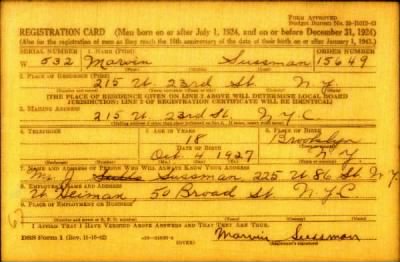 Form Approved
Budget Bureau No.
REGISTRATION CARD (Men born on or after July 1, 1924, and on or before December 31, 1924)
(Also for the registration of men as they reach the 18th anniversary of the date of their birth on or after January 1, 1943.)
SERIAL NUMBER 1. NAME (Print) ORDER NUMBER
W 532 Marvin Sussman 15649
2. PLACE OF RESIDENCE (Print)
215 W 23rd St N.Y.
[THE PLACE OF RESIDENCE GIVEN ON LINE 2 ABOVE WILL DETERMINE LOCAL BOARD
JURISDICTION; LINE 2 OF REGISTRATION CERTIFICATE WILL BE IDENTICAL]
3. MAILING ADDRESS
215 W 23rd St. N.Y.C
4. TELEPHONE 5. AGE IN YEARS 6. PLACE OF BIRTH
18 Brooklyn
DATE OF BIRTH
Oct. 4 1927 N.Y.
7. NAME AND ADDRESS OF PERSON WHO WILL ALWAYS KNOW YOUR ADDRESS
Sussman 225 W 86 St N.Y.
8. EMPLOYER'S NAME AND ADDRESS
Heiman 50 Broad St N.Y.C
9. PLACE OF EMPLOYMENT OR BUSINESS
I AFFIRM THAT I HAVE VERIFIED ABOVE ANSWERS AND THAT THEY ARE TRUE.
DSS Form 1 (Rev. 11-16-42) (OVER) Marvin Sussman
(Registrant's signature)